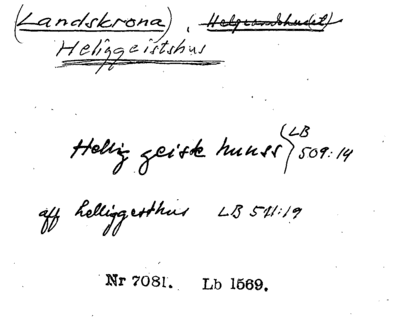 (Landskrona).
Heliggeistshus
Hellig geistz hunss } LB 509:14
aff helliggesthus LB 511:19
Nr 7081. Lb 1569.